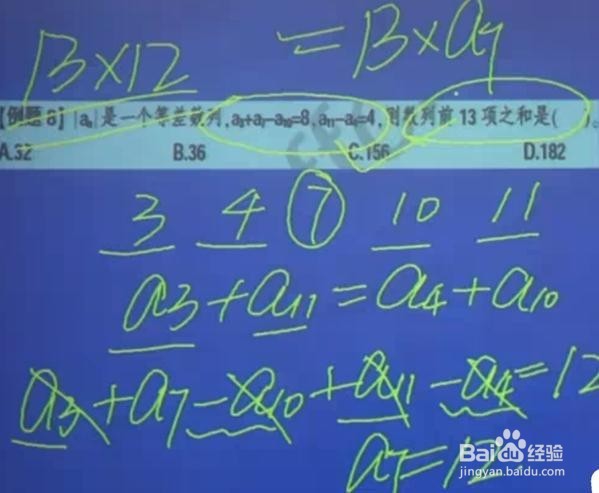 13×12 = 13×a7
【例题8】{an}是一个等差数列,a3+a7-a10=8,a11-a4=4,则数列前13项之和是( )。
A.32 B.36 C.156 D.182
3 4 7 10 11
a3+a11=a4+a10
a3+a7-a10+a11-a4=12
a7=12
Baidu 经验
jingyan.baidu.com